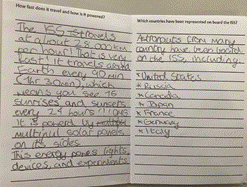 How fast does it travel and how is it powered?
The ISS travels
at about 28,000km
per hour! That is very
fast! It travels around
Earth every 90 min
(1hr 30min), which
means you see 16
sunrises and sunsets
every 24 hours / 1 days
It is powered by
multiple solar panels
on its sides.
This energy powers lights,
devices, and experiments
Which countries have been represented on board the ISS?
Astronauts from many
country have been
on the ISS, including
* United States
* Russia
* Canada
* Japan
* France
* Germany
* Italy